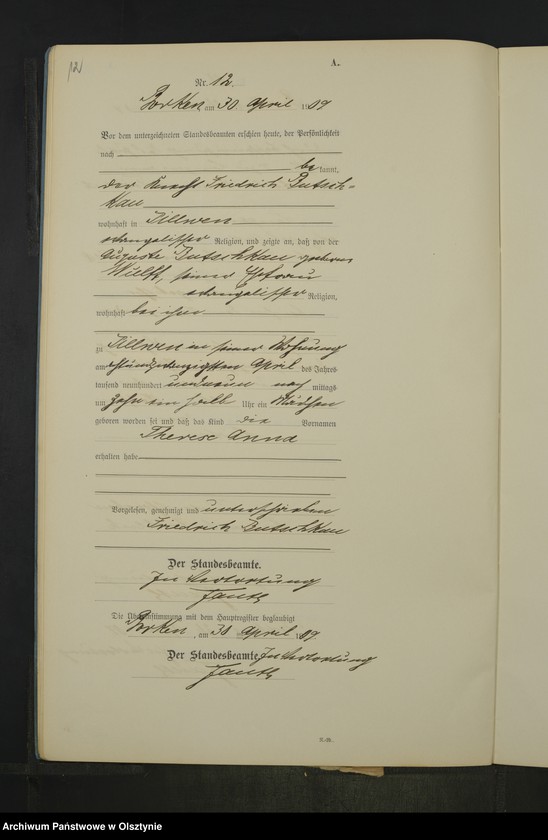 12
A.
Nr. 12.
Borken am 30 April 1909
Vor dem unterzeichneten Standesbeamten erschien heute, der Persönlichkeit
nach
be kannt,
der Knecht Friedrich Dutsch-
kau
wohnhaft in Lillwen
evangelischer Religion, und zeigte an, daß von der
Auguste Dutschkau geborene
Wulff, seiner Ehefrau
evangelischer Religion,
wohnhaft bei ihm
zu Lillwen in seiner Wohnung
am April des Jahres
tausend neunhundert und neun nach mittags
um zehn ein halb Uhr ein Mädchen
geboren worden sei und daß das Kind die Vornamen
Therese Anna
erhalten habe
Vorgelesen, genehmigt und unterschrieben
Friedrich Dutschkau
Der Standesbeamte.
In Vertretung
Die Übereinstimmung mit dem Hauptregister beglaubigt
Borken, am 30 April 1909.
Der Standesbeamte. In Vertretung
Archiwum Państwowe w Olsztynie